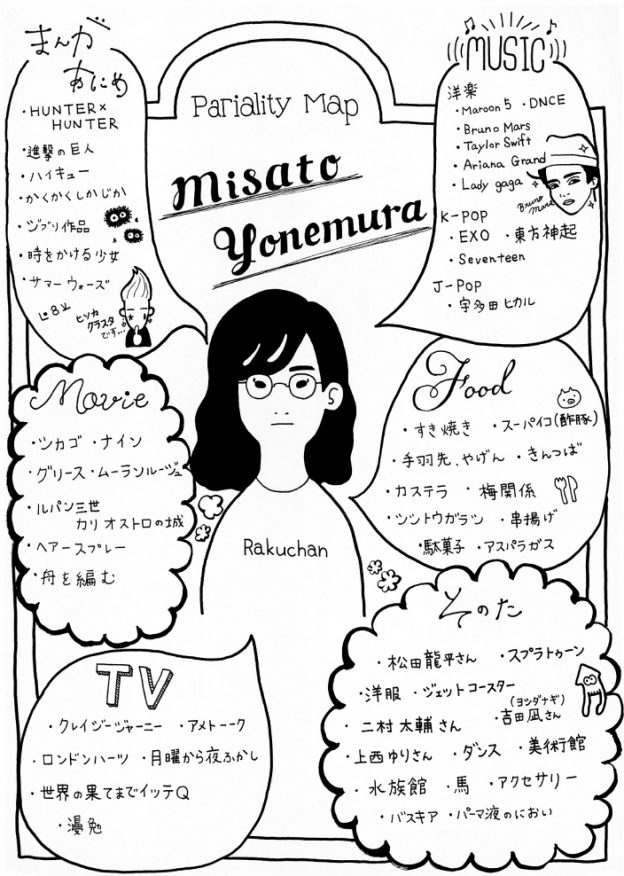 まんが
あにめ
・HUNTER×
HUNTER
・進撃の巨人
・ハイキュー
・かくかくしかじか
・ジブリ作品
・時をかける少女
・サマーウォーズ
ヒソカ
クラスタ
です…
MUSIC
洋楽
・Maroon 5 ・DNCE
・Bruno Mars
・Taylor Swift
・Ariana Grand
・Lady gaga
Bruno
Mars
K-POP
・EXO ・東方神起
・Seventeen
J-POP
・宇多田ヒカル
Pariality Map
Misato
Yonemura
Movie
・シカゴ ・ナイン
・グリース・ムーランルージュ
・ルパン三世
カリオストロの城
・ヘアースプレー
・舟を編む
Food
・すき焼き ・スーパイコ(酢豚)
・手羽先、やげん ・きんつば
・カステラ ・梅関係
・シシトウガラシ ・串揚げ
・駄菓子 ・アスパラガス
Rakuchan
TV
・クレイジージャーニー ・アメトーーク
・ロンドンハーツ ・月曜から夜ふかし
・世界の果てまでイッテQ
・漫勉
そのた
・松田龍平さん ・スプラトゥーン
・洋服 ・ジェットコースター
(ヨシダナギ)
・二村太輔さん ・吉田凪さん
・上西ゆりさん ・ダンス ・美術館
・水族館 ・馬 ・アクセサリー
・バスキア ・パーマ液のにおい